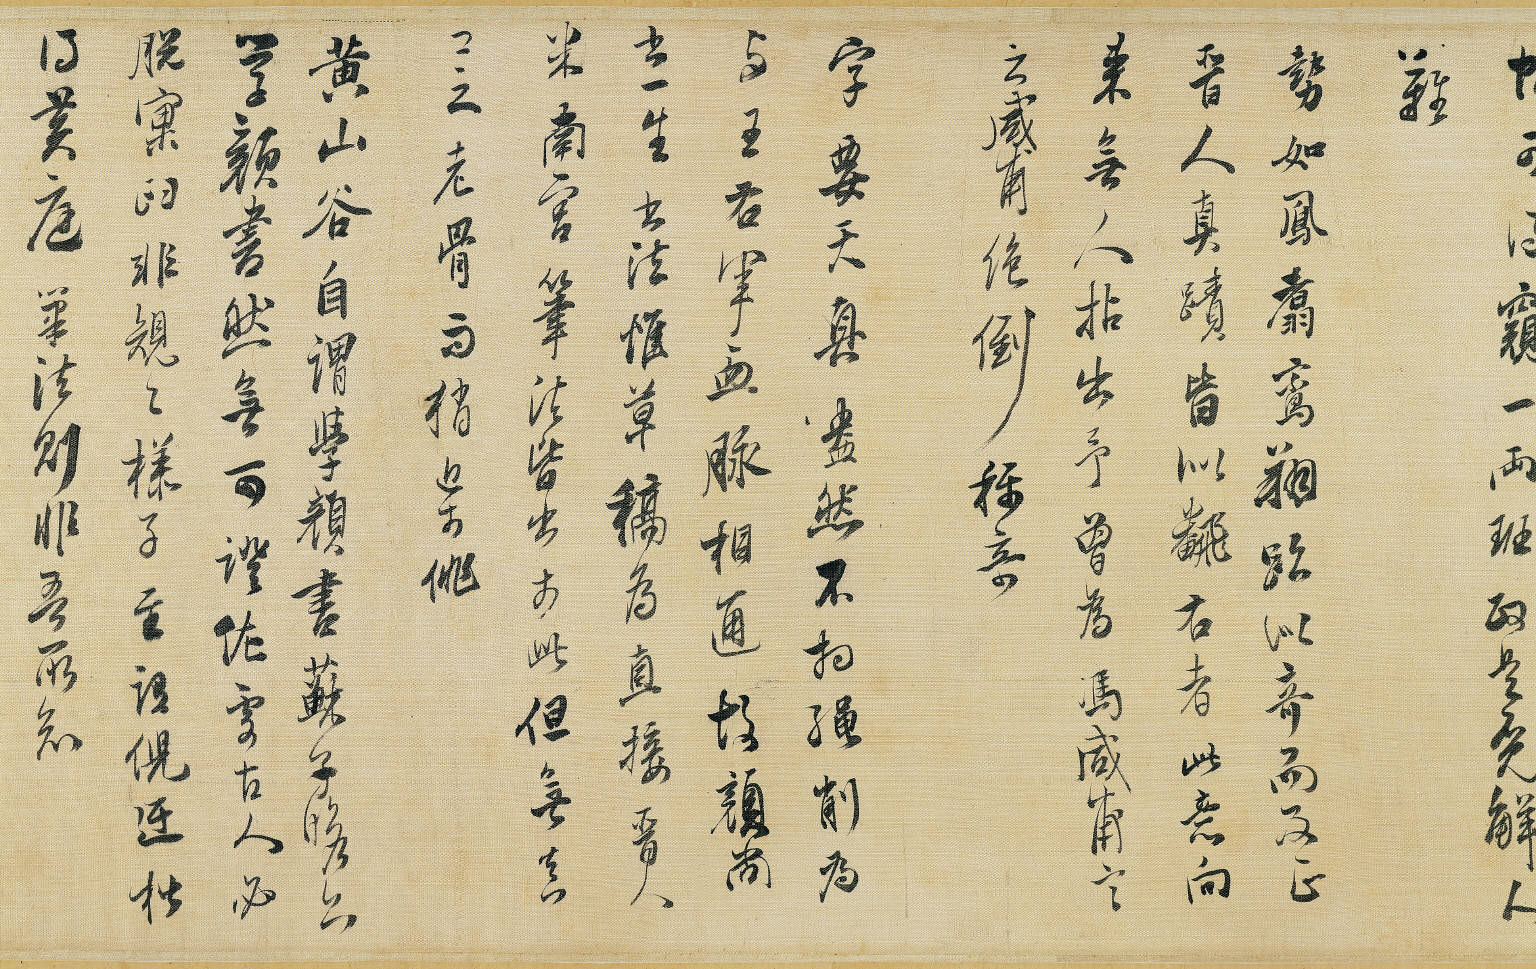 可得窺一兩班政是免解人
難
勢如鳳翥鸞翔跡似奇而反正
晉人真蹟皆似右者此意向
來無人拈出予曾為馮咸甫言
云咸甫絕倒稱奇
字要天真盎然不拘繩削為
与王右軍血脉相通故顏尚
书一生书法惟草稿為直接晉人
米南宮筆法皆出於此但無其
二三老骨而稍近於佻
黃山谷自謂學顏書蘇子瞻亦
學顏書然無可證佐處古人必
脫窠臼非規々樣子至謂倪迂楷
得黃庭筆法則非吾所知